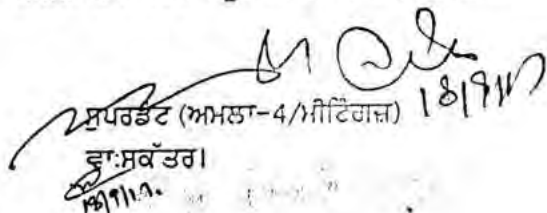 18/9/17
ਸੁਪਰਡੰਟ (ਅਮਲਾ-4/ਮੀਟਿੰਗਜ਼)
ਵਾ:ਸਕੱਤਰ।
18/9/17.